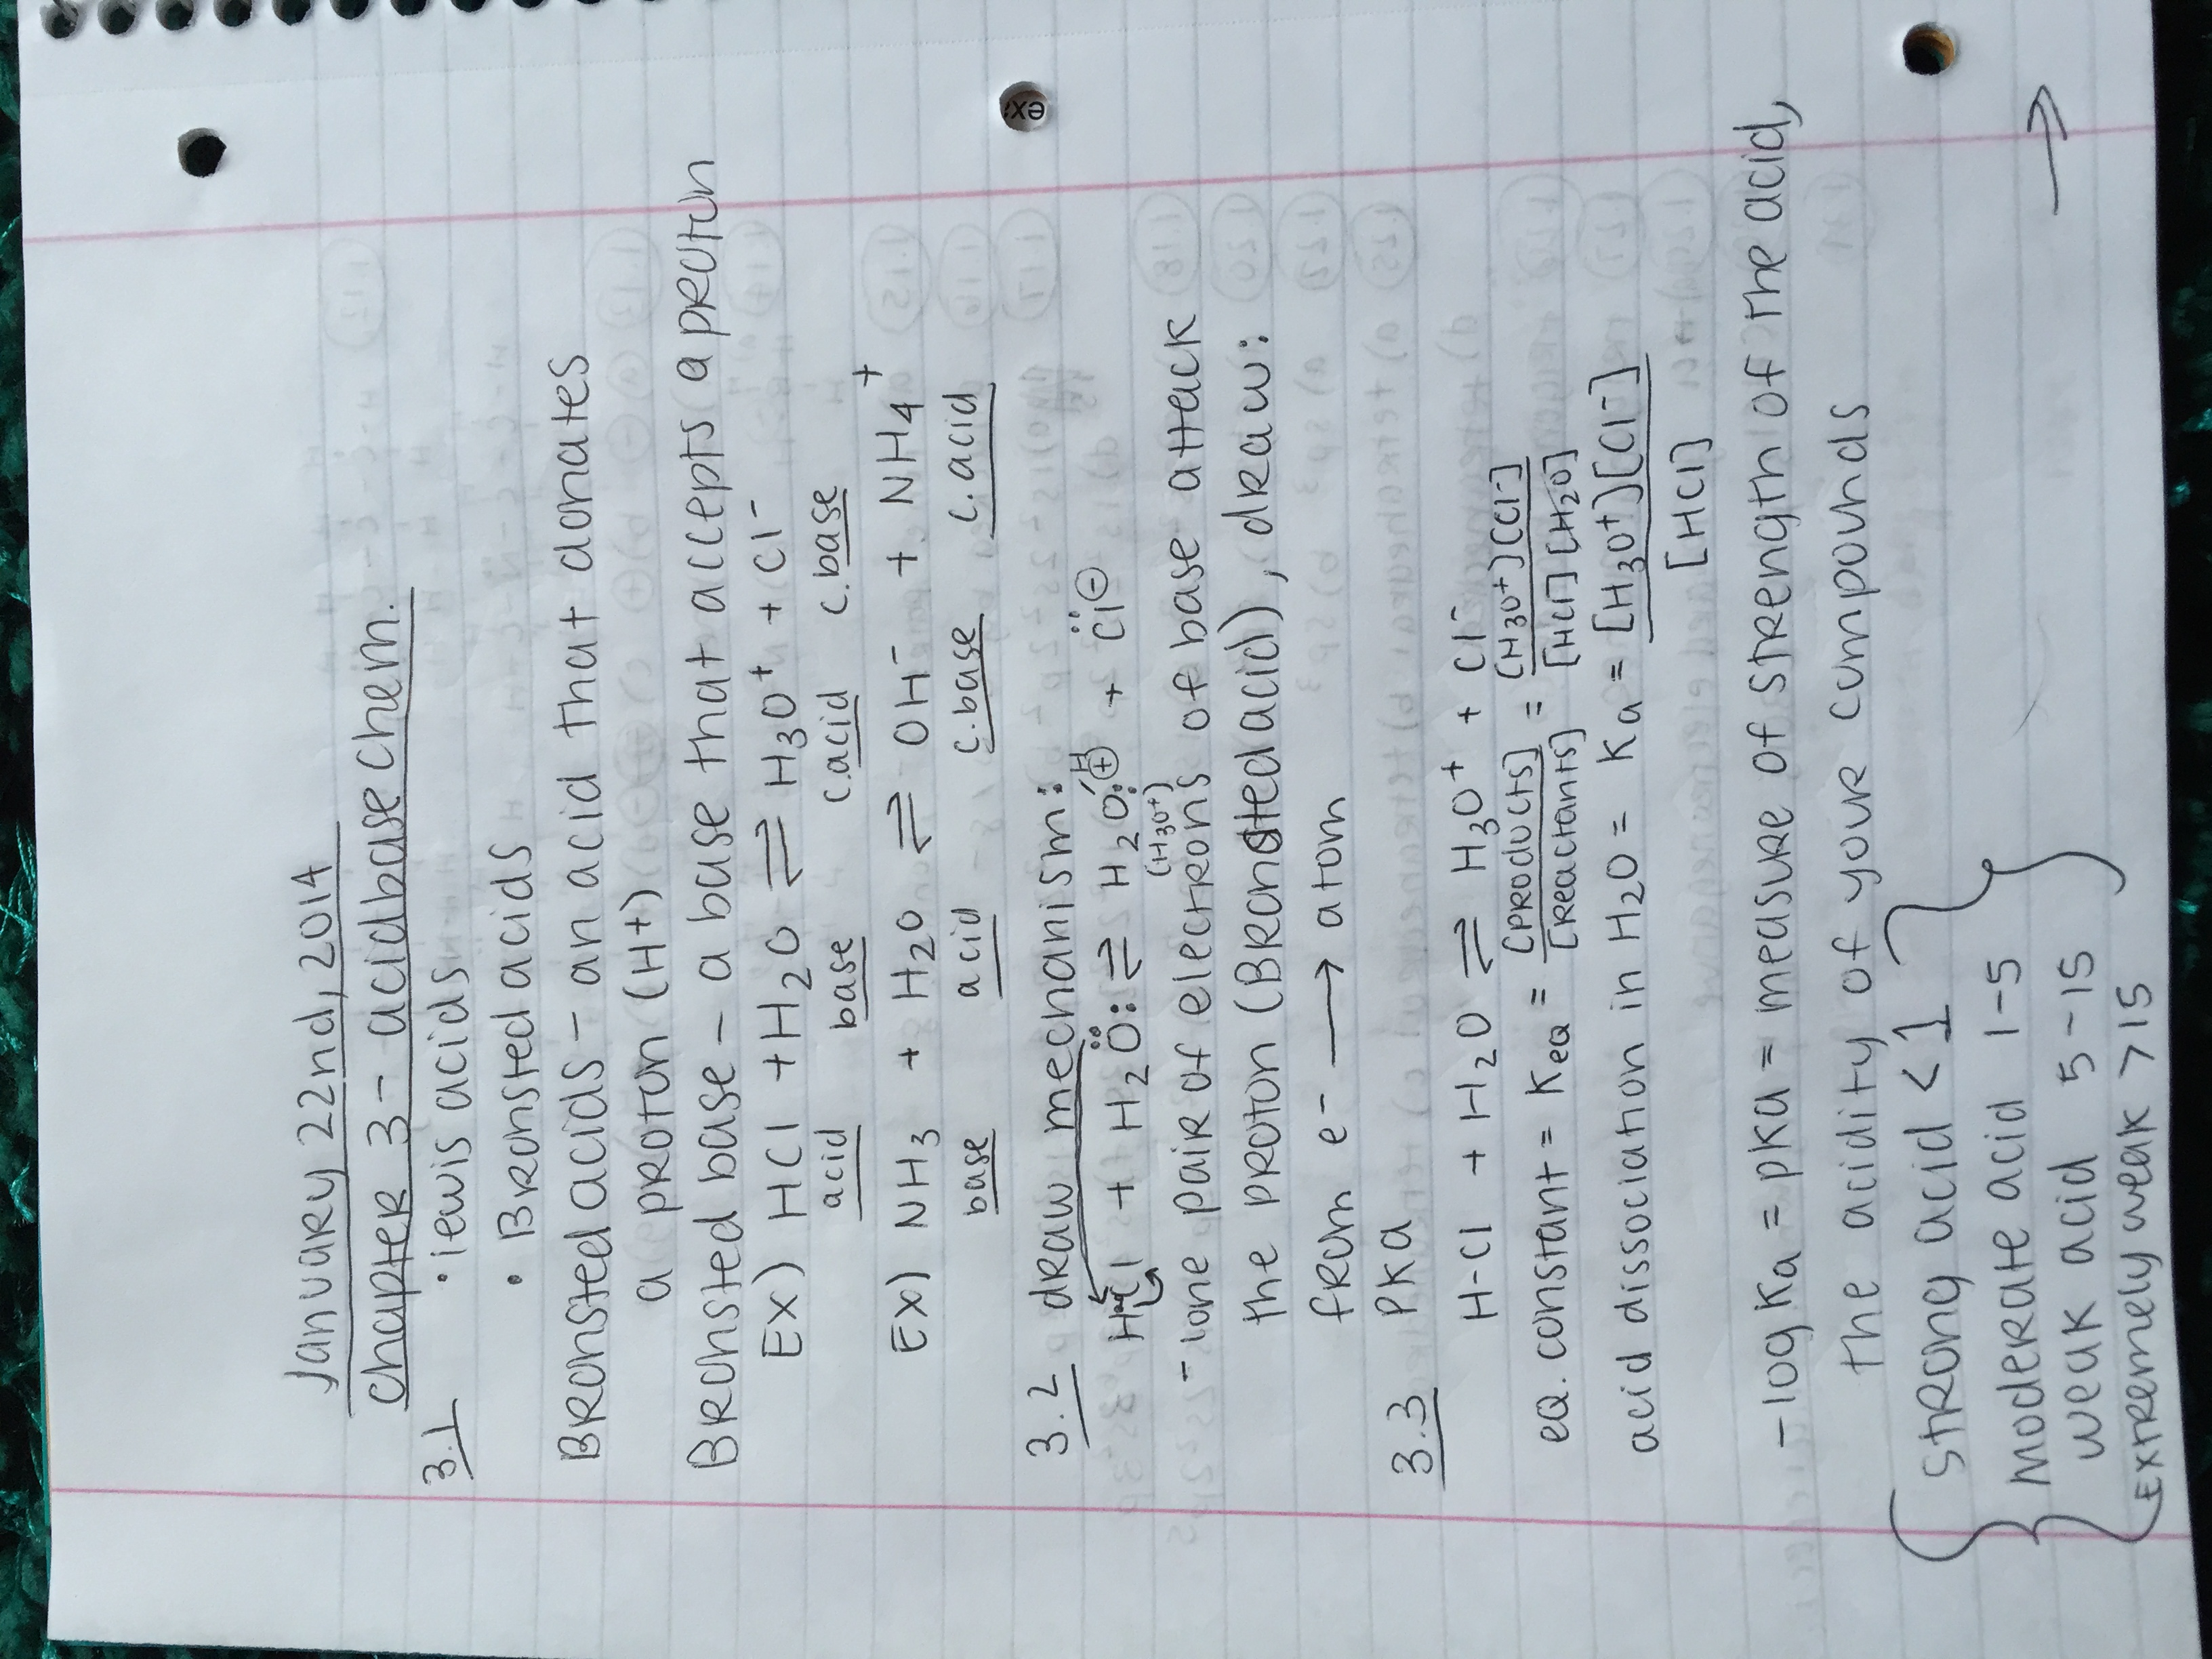 January 22nd, 2014
Chapter 3 - acid base chem.
3.1 • lewis acids
• Bronsted acids
Bronsted acids - an acid that donates
a proton (H+)
Bronsted base - a base that accepts a proton
Ex) HCl + H2O ⇌ H3O+ + Cl-
acid base c.acid c.base
Ex) NH3 + H2O ⇌ OH- + NH4+
base acid c.base c.acid
3.2 draw mechanism:
H-Cl + H2Ö: ⇌ H2O:-H⊕ + C̈l⊖
(H3O+)
- lone pair of electrons of base attack
the proton (Bronsted acid), draw:
from e- → atom
3.3 PKa
H-Cl + H2O ⇌ H3O+ + Cl-
eq. constant = Keq = [products]/[reactants] = [H3O+][Cl-]/[HCl][H2O]
acid dissociation in H2O = Ka = [H3O+][Cl-]
[HCl]
-log Ka = pKa = measure of strength of the acid,
the acidity of your compounds
strong acid < 1
moderate acid 1-5
weak acid 5-15
Extremely weak >15
→
ex: